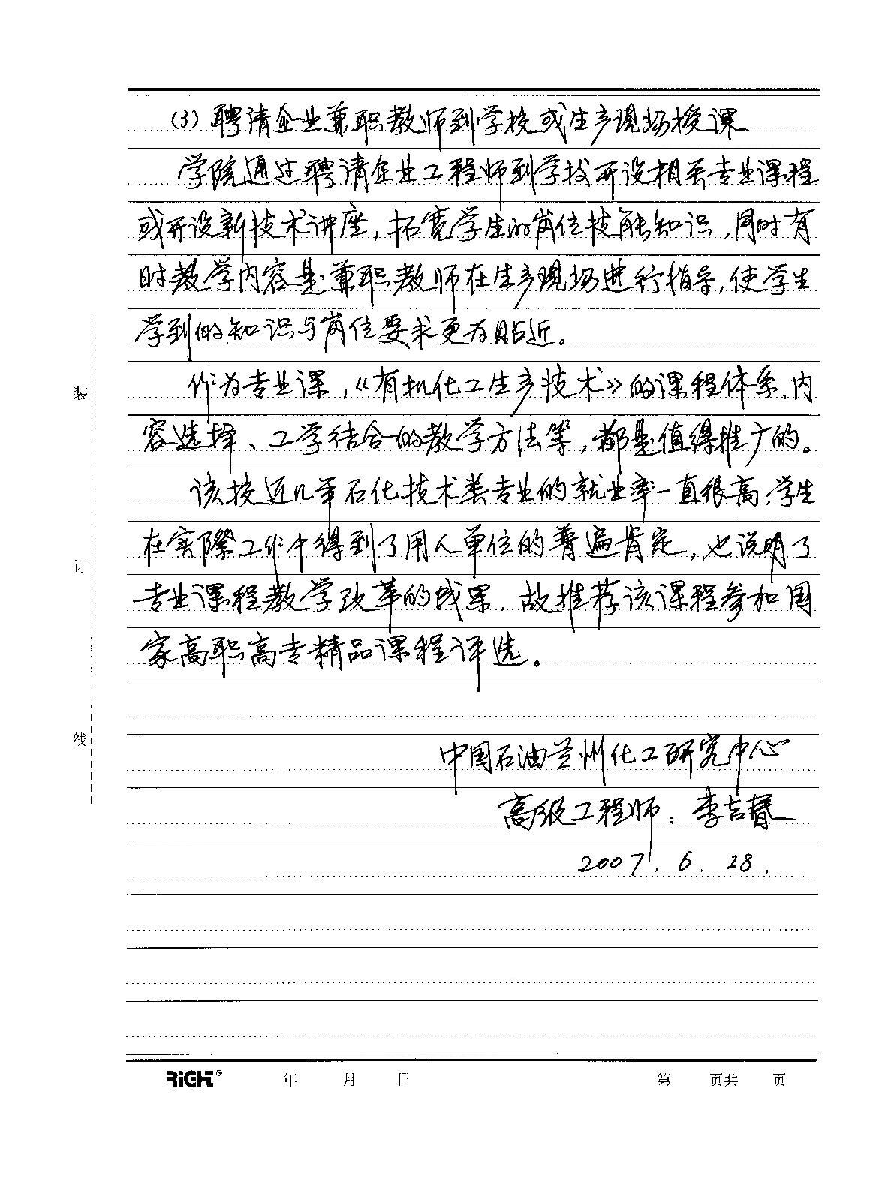 (3) 聘请企业兼职教师到学校或生产现场授课
学院通过聘请企业工程师到学校开设相关专业课程
或开设新技术讲座，拓宽学生的岗位技能知识，同时有
时教学内容是兼职教师在生产现场进行指导，使学生
学到的知识与岗位要求更为贴近。
作为专业课，《有机化工生产技术》的课程体系、内
容选择、工学结合的教学方法等，都是值得推广的。
该校近几年石化技术类专业的就业率一直很高，学生
在实際工作中得到了用人单位的普遍肯定，也说明了
专业课程教学改革的成果，故推荐该课程参加国
家高职高专精品课程评选。
中国石油兰州化工研究中心
高级工程师：李吉春
2007.6.28.
装
订
线
RiGHT® 年 月 日 第 页共 页